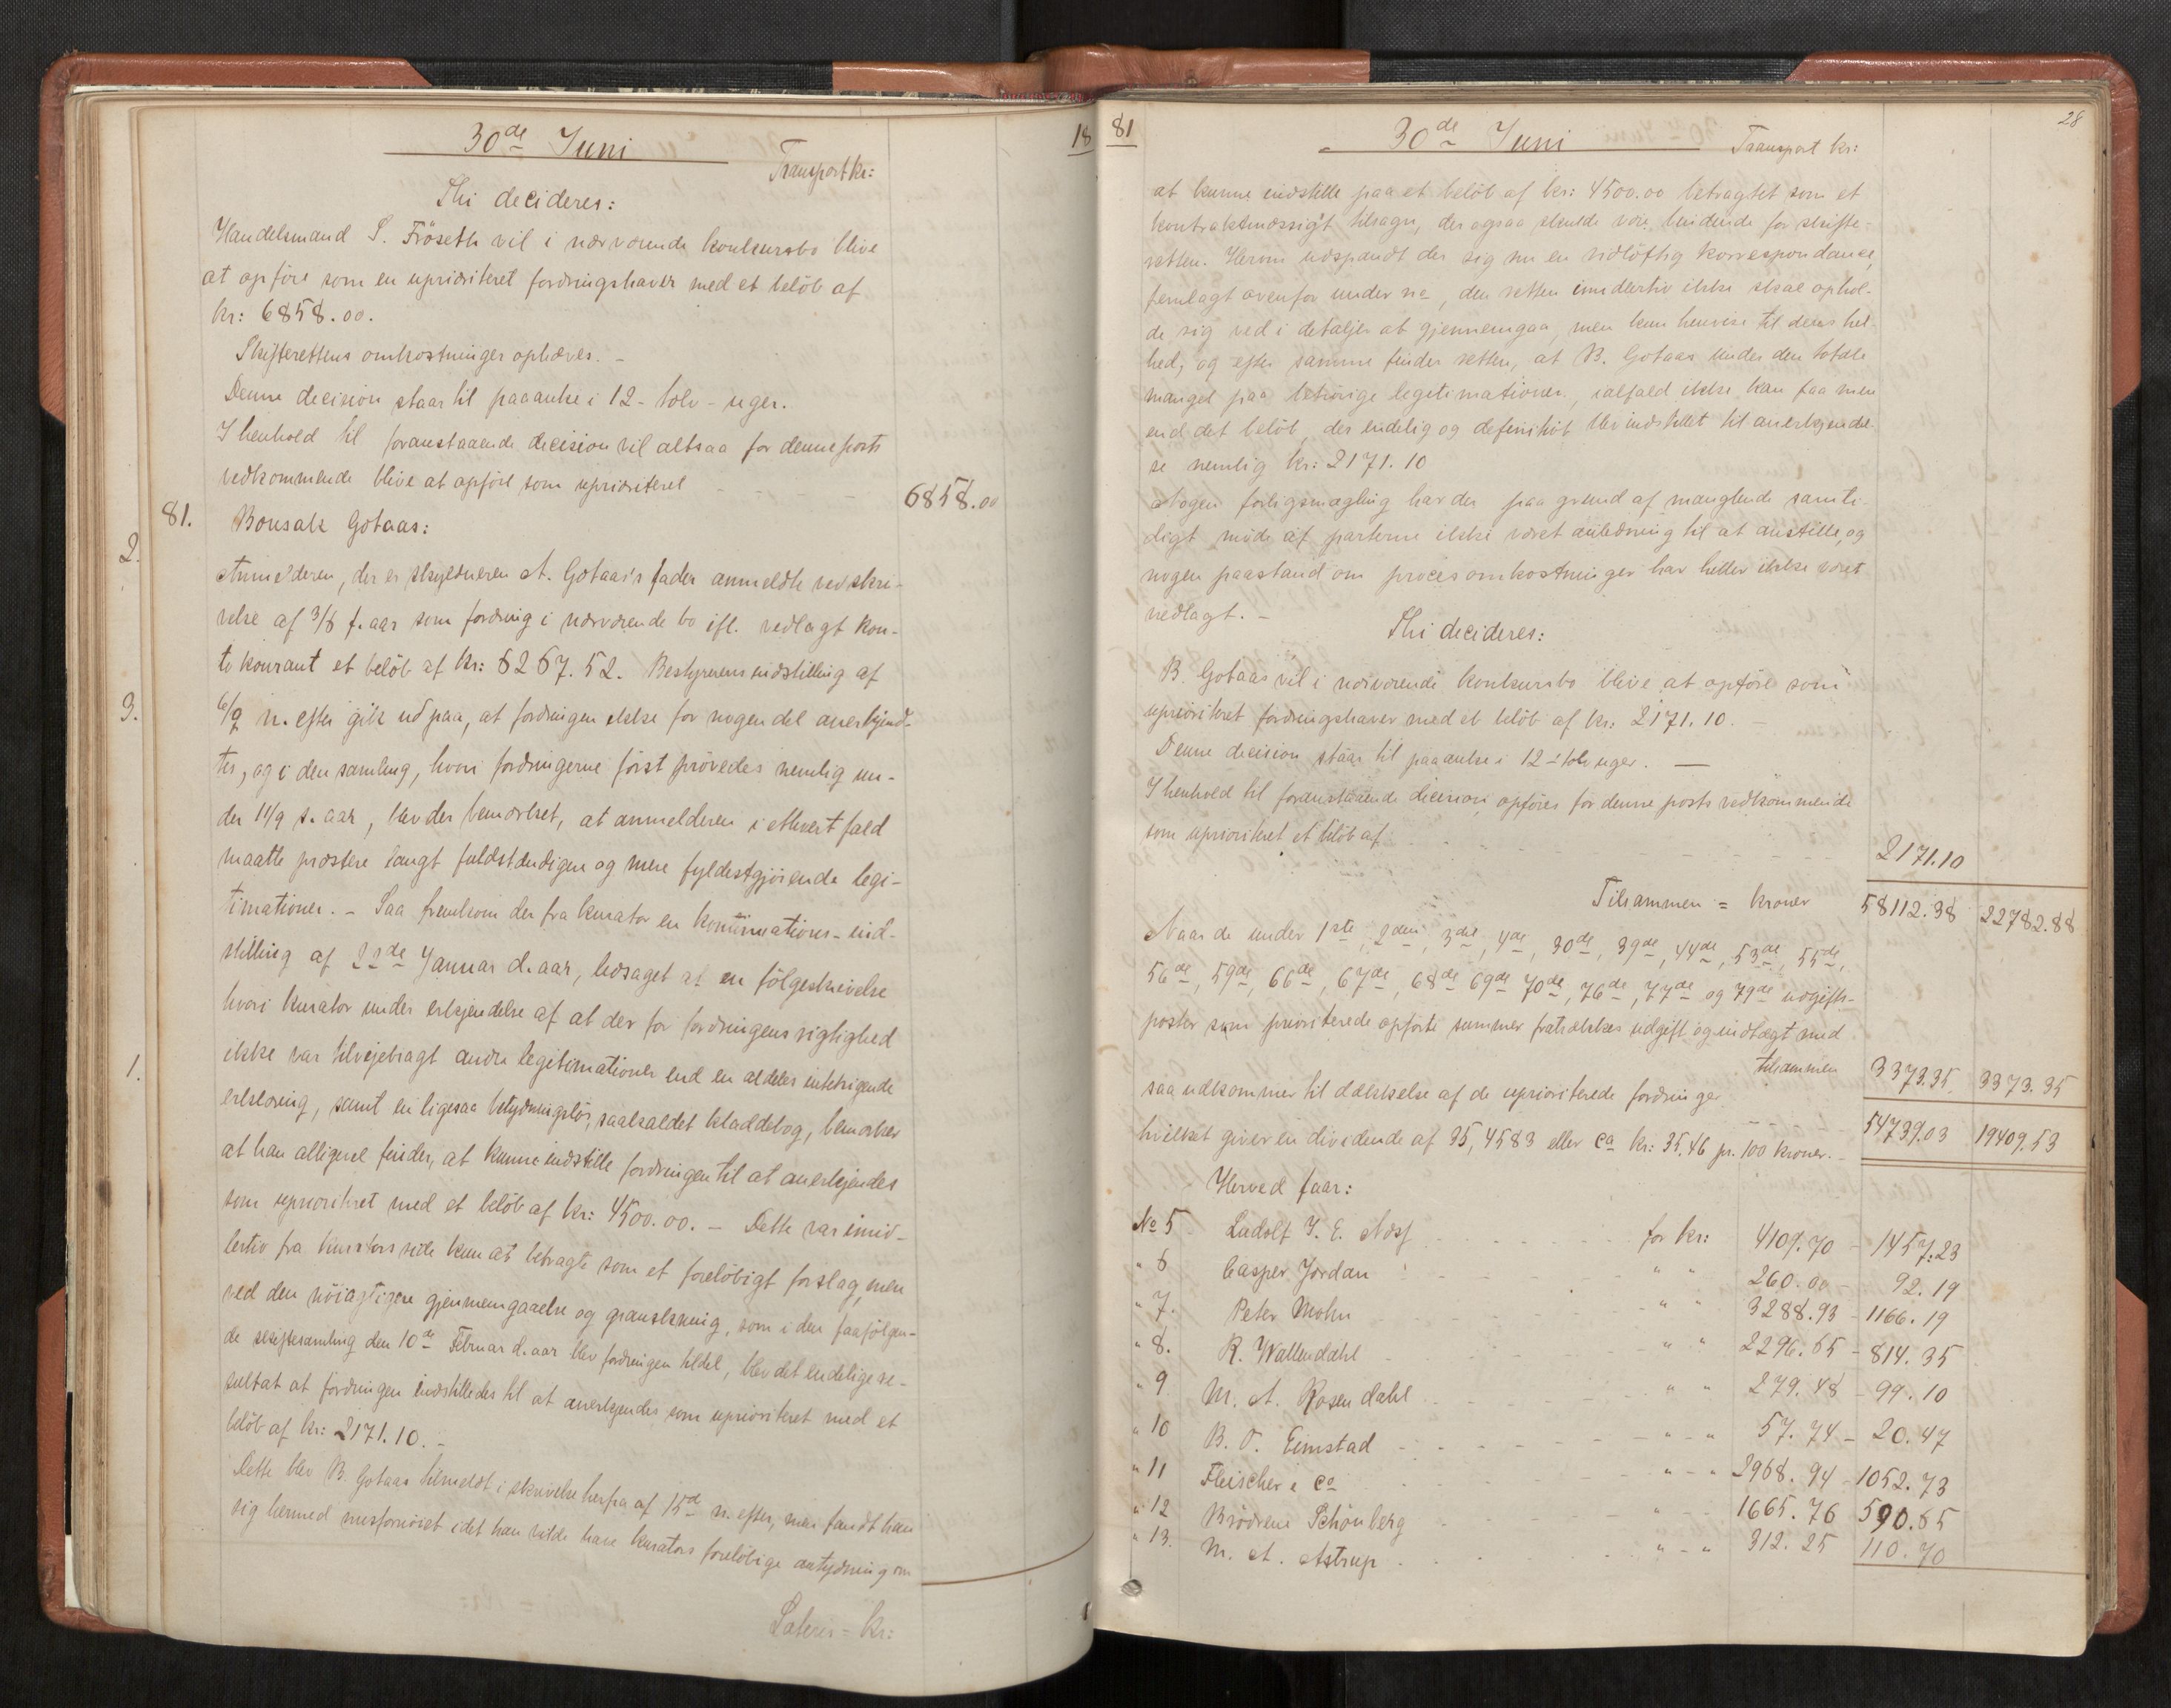 30de Juni
18
Transport kr:
Thi decideres:
Handelsmand S. Fröseth vil i nærværende konkursbo blive
at opföre som en uprioriteret fordringshaver med et belöb af
kr: 6858.00.
Skifterettens omkostninger ophæves. –
Denne decision staar til paaanke i 12 - tolv - uger.
I henhold til foranstaaende decision vil altsaa for denne posts
vedkommende blive at opföre som uprioriteret - - - - 6858.00
81. Bonsak Gotaas:
2.
Anmelderen, der er skyldneren A. Gotaas's fader anmeldte ved skri-
velse af 3/8 f. aar som fordring i nærværende bo ifl. vedlagt kon-
to kourant et belöb af kr: 6267.52. Bestyrerens indstilling af
3.
6/9 n. efter gik ud paa, at fordringen ikke for nogen del anerkjend-
tes, og i den samling, hvori fordringerne först prövedes nemlig un-
der 11/9 s. aar, blev der bemærket, at anmelderen i ethvert fald
maatte præstere langt fuldstændigere og mere fyldestgjörende legi-
timationer. – Saa fremkom der fra kurator en kontinuations-ind-
stilling af 22de Januar d. aar, ledsaget af en fölgeskrivelse
hvori kurator under erkjendelse af at der for fordringens rigtighed
1.
ikke var tilveiebragt andre legitimationer end en aldeles intetsigende
erklæring, samt en ligesaa betydningslös, saakaldet kladdebog, bemærker
at han alligevel finder, at kunne indstille fordringen til at anerkjendes
som uprioriteret med et belöb af kr: 4500.00. – Dette var imid-
lertid fra kurators side kun at betragte som et foreløbigt forslag, men
ved den nöiagtigere gjennemgaaelse og granskning, som i den paafölgen-
de skiftesamling den 10de Februar d. aar blev fordringen tildel, blev det endelige re-
sultat at fordringen indstilledes til at anerkjendes som uprioriteret med et
belöb af kr: 2171.10. –
Dette blev B. Gotaas tilmeldt i skrivelse herfra af 15de n. efter, men fandt han
sig hermed misfornöiet idet han vilde have kurators foreløbige antydning om
Lateris = kr:
81
30de Juni
28
Transport kr:
at kunne indstille paa et belöb af kr: 4500.00 betragtet som et
kontraktmæssigt tilsagn, der ogsaa skulde være bindende for skifte-
retten. Herom udspandt der sig nu en vidlöftig korrespondance,
fremlagt ovenfor under no, den retten imidlertid ikke skal ophol-
de sig ved i detaljer at gjennemgaa, men kun henvise til deres hel-
hed, og efter samme finder retten, at B. Gotaas under den totale
mangel paa behörige legitimationer, ialfald ikke kan faa mere
end det belöb, der endelig og definitivt blev indstillet til anerkjendel-
se nemlig kr: 2171.10
Nogen forligsmægling har der paa grund af manglende samti-
digt möde af parterne ikke været anledning til at anstille, og
nogen paastand om procesomkostninger har heller ikke været
nedlagt. –
Thi decideres:
B. Gotaas vil i nærværende konkursbo blive at opföre som
uprioriteret fordringshaver med et belöb af kr: 2171.10. –
Denne decision staar til paaanke i 12 - tolv uger. —
I henhold til foranstaaende decision opföres for denne posts vedkommende
som uprioriteret et belöb af - - - - - - 2171.10
Tilsammen = kroner 58112.38 22782.88
Naar de under 1ste, 2den, 3die, 4de, 30de, 39de, 44de, 53de, 55de,
56de, 59de, 66de, 67de, 68de 69de 70de, 76de, 77de og 79de udgifts-
poster som prioriterede opförte summer fratrækkes udgift og indtægt med
tilsammen 3373.35 3373.35
saa udkommer til dækkelse af de uprioriterede fordringer - - - - 54739.03 19409.53
hvilket giver en dividende af 35,4583 eller ca kr: 35.46 pr. 100 kroner. –
Herved faar:
No 5 Ludolf J. E. Næss - - - - for kr: 4109.70 - 1457.23
" 6 Casper Jordan - - - - " " 260.00 - 92.19
" 7. Peter Mohn - - - - " " 3288.93 - 1166.19
" 8. R. Wallendahl - - - - " " 2296.65 - 814.35
" 9 M. A. Rosendahl - - - - " " 279.48 - 99.10
" 10 B. O. Eimstad - - - - " - " 57.74 - 20.47
" 11 Fleischer & Co - - - - " - " 2968.94 - 1052.73
" 12 Brödrene Schönberg - - - - " - 1665.76 590.65
" 13. M. A. Astrup - - - - " - " 312.25 110.70